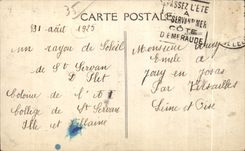 35
CARTE POSTALE
PASSEZ L'ÉTÉ
A
ST SERVAN S/MER
CÔTE
D'ÉMERAUDE
31 août 1925
un rayon de Soleil
de St Servan
Colonie de l'
Collège de St Servan
Ille et Vilaine
Monsieur
Emile
Jouy en Josas
Par Versailles
Seine et Oise